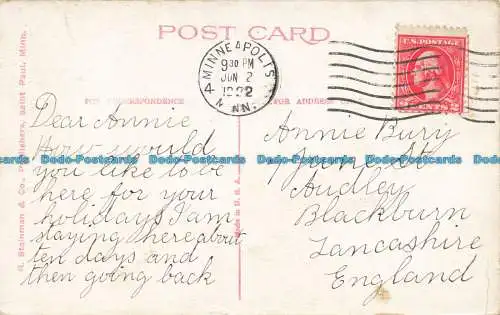 POST CARD
MINNEAPOLIS
9 30 PM
JUN 2
1922
4 MINN.
U.S. POSTAGE
2 CENTS 2
FOR CORRESPONDENCE
FOR ADDRESS
Dear Annie
How would
you like to be
here for your
holidays I am
staying here about
ten days and
then going back
Annie Bury
St
Audley
Blackburn
Lancashire
England
H. Steinman & Co., Publishers, Saint Paul, Minn.
Made in U. S. A.
Dodo-Postcards Dodo-Postcards Dodo-Postcards Dodo-Postcards Dodo-Postcards